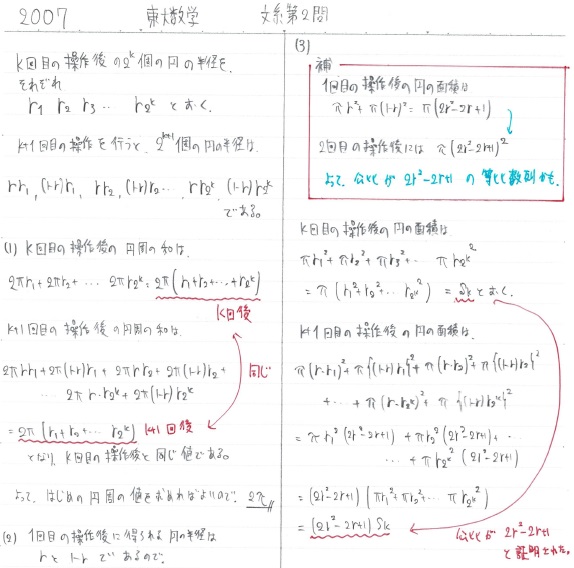 2007 東大数学 文系第2問
k回目の操作後の2^k個の円の半径を、
それぞれ
r₁ r₂ r₃ … r_{2^k} とおく。
k+1回目の操作を行うと、2^{k+1}個の円の半径は、
rr₁, (1-r)r₁, rr₂, (1-r)r₂ … rr_{2^k}, (1-r)r_{2^k}
である。
(1) k回目の操作後の円周の和は、
2πr₁+2πr₂+ … 2πr_{2^k} = 2π(r₁+r₂+…+r_{2^k})
k回後
k+1回目の操作後の円周の和は、
2πrr₁+2π(1-r)r₁+2πrr₂+2π(1-r)r₂+
… 2πr·r_{2^k}+2π(1-r)r_{2^k}
同じ
= 2π(r₁+r₂+… r_{2^k}) k+1回後
となり、k回目の操作後と同じ値である。
よって、はじめの円周の値を求めればよいので、2π
(2) 1回目の操作後に得られる円の半径は
rと1-rであるので、
(3)
補
1回目の操作後の円の面積は
πr²+π(1-r)² = π(2r²-2r+1)
2回目の操作後には π(2r²-2r+1)²
よって、公比が 2r²-2r+1 の等比数列かも。
k回目の操作後の円の面積は、
πr₁²+πr₂²+πr₃²+ … πr_{2^k}²
= π(r₁²+r₂²+… r_{2^k}²) = Sk とおく。
k+1回目の操作後の円の面積は、
π(r·r₁)²+π{(1-r)r₁}²+π(r·r₂)²+π{(1-r)r₂}²
+ … +π(r·r_{2^k})²+π{(1-r)r_{2^k}}²
= πr₁²(2r²-2r+1)+πr₂²(2r²-2r+1)+…
… +πr_{2^k}²(2r²-2r+1)
= (2r²-2r+1)(πr₁²+πr₂²+… πr_{2^k}²)
= (2r²-2r+1)Sk
公比が 2r²-2r+1
と証明された。